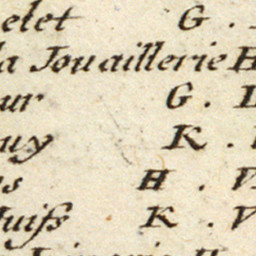 elet G .
la Jouaillerie H
ur G .
uy K .
s H . V
Juifs K . V